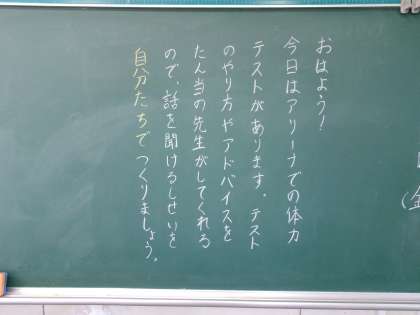 おはよう！
今日はアリーナでの体力
テストがあります。テスト
のやり方やアドバイスを
たん当の先生がしてくれる
ので、話を聞けるしせいを
自分たちでつくりましょう。
(金